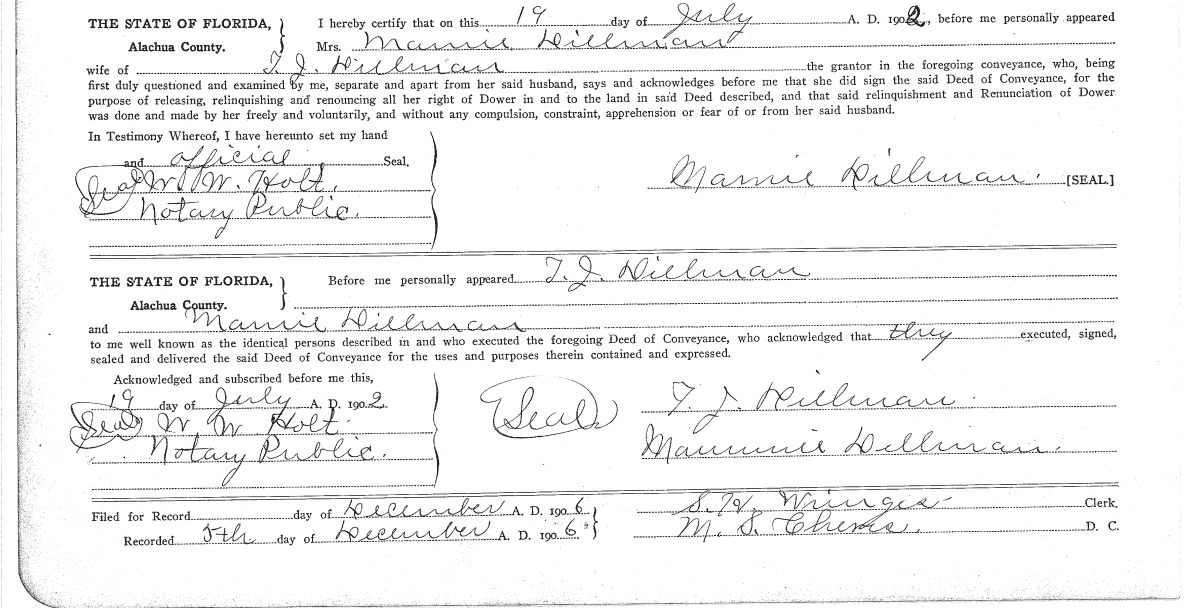 THE STATE OF FLORIDA, I hereby certify that on this 19 day of July A. D. 1902, before me personally appeared
Alachua County. Mrs. Mamie Dillman
wife of T. J. Dillman the grantor in the foregoing conveyance, who, being
first duly questioned and examined by me, separate and apart from her said husband, says and acknowledges before me that she did sign the said Deed of Conveyance, for the
purpose of releasing, relinquishing and renouncing all her right of Dower in and to the land in said Deed described, and that said relinquishment and Renunciation of Dower
was done and made by her freely and voluntarily, and without any compulsion, constraint, apprehension or fear of or from her said husband.
In Testimony Whereof, I have hereunto set my hand
and official Seal.
Seal W. W. Holt.
Notary Public.
Mamie Dillman. [SEAL.]
THE STATE OF FLORIDA, Before me personally appeared T. J. Dillman
Alachua County.
and Mamie Dillman
to me well known as the identical persons described in and who executed the foregoing Deed of Conveyance, who acknowledged that they executed, signed,
sealed and delivered the said Deed of Conveyance for the uses and purposes therein contained and expressed.
Acknowledged and subscribed before me this,
19 day of July A. D. 1902.
Seal W. W. Holt.
Notary Public.
Seal
T. J. Dillman.
Mammie Dillman.
Filed for Record day of December A. D. 1906 S. H. Clerk.
Recorded 5th day of December A. D. 1906 M. S. D. C.